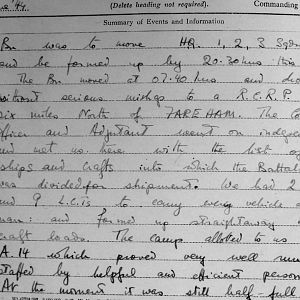 (Delete heading not required).
Summary of Events and Information
Bn. was to move HQ. 1, 2, 3 Sqdn
and be formed up by 20.30hrs this
The Bn. moved at 07.40.hrs. and did
without serious mishap to a R.C.R.P.
six miles North of FAREHAM. The Co
officer and Adjutant went on independ
and met us here with the list of
ships and crafts into which the Battal
was divided for shipment. We had 2
and 9 L.C.Ts to carry every vehicle a
man: and formed up straightaway
craft loads. The camp allotted to us
A.14 which proved very well run
staffed by helpful and efficient person
At the moment it was still half-full